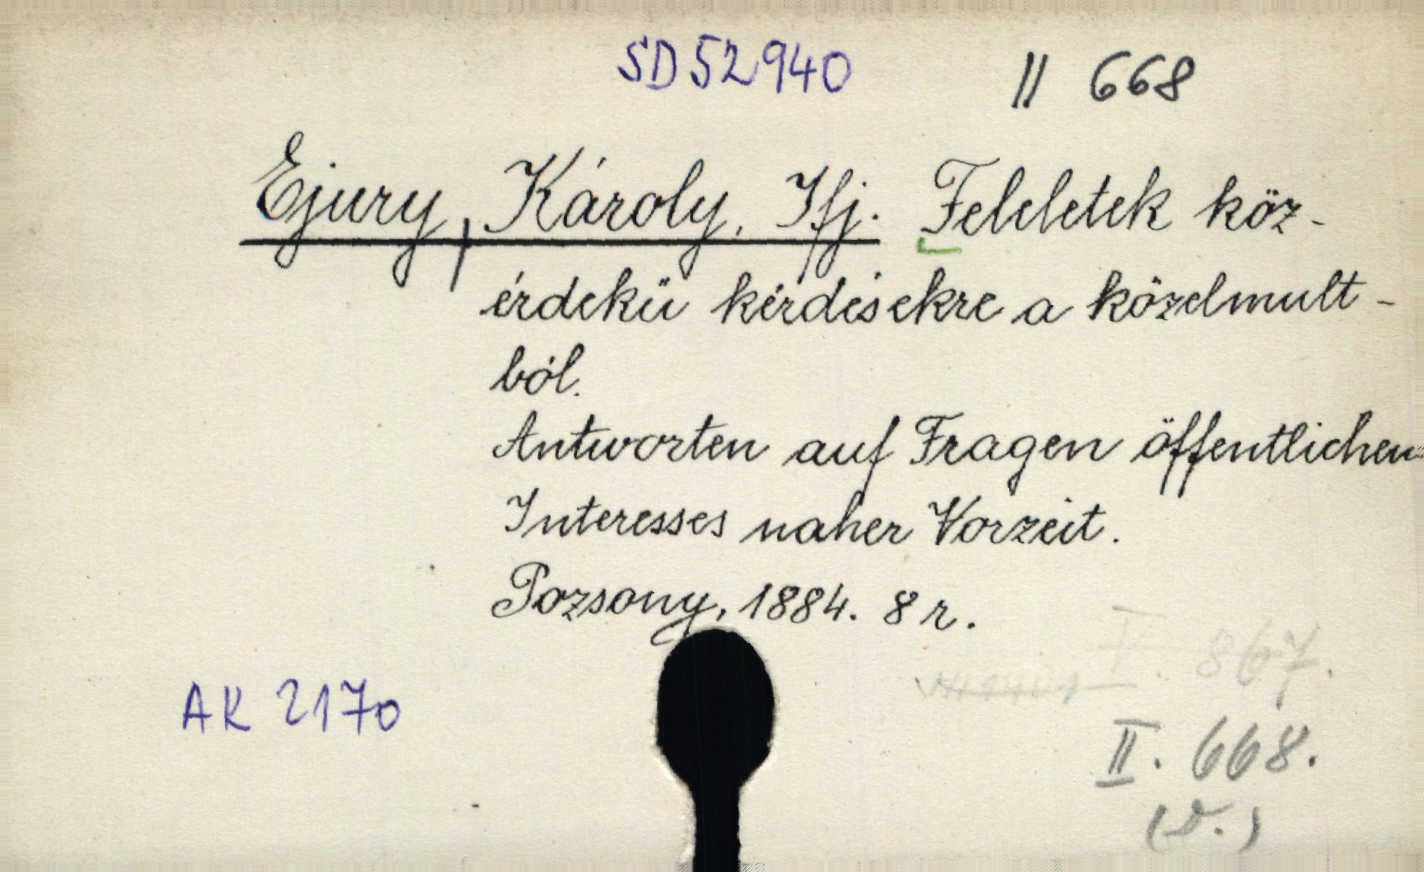 SD 52940 II 668
Ejury, Károly, Ifj. Feleletek köz-
érdekü kérdésekre a közelmult-
ból.
Antworten auf Fragen öffentlichen
Interesses naher Vorzeit.
Pozsony, 1884. 8 r.
V. 867.
AK 2170
II. 668.